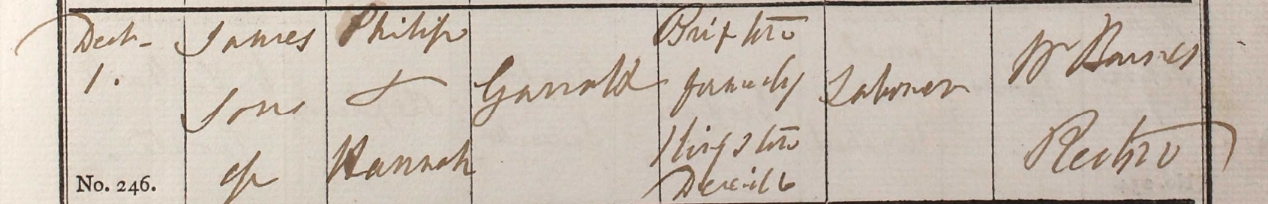 Decr.
1.
No. 246.
James
Son
of
Philip
&
Hannah
Garrold
Brixton
formerly
Kingston
Laborer
W Barnes
Rector